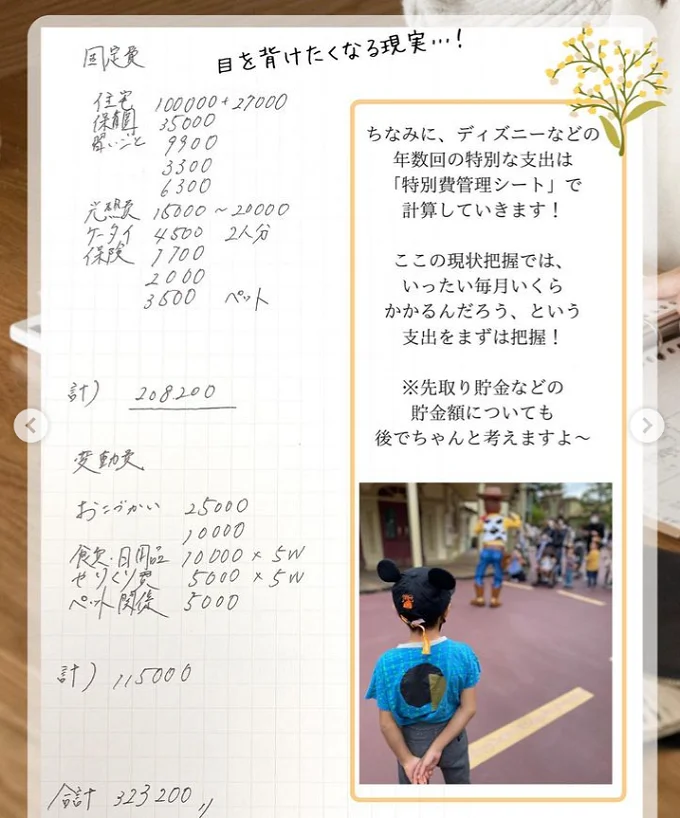 目を背けたくなる現実…！
固定費
住宅 100000+27000
保育園 35000
習いごと 9900
3300
6300
光熱費 15000～20000
ケータイ 4500 2人分
保険 1700
2000
3500 ペット
計) 208200
変動費
おこづかい 25000
10000
食費・日用品 10000×5W
やりくり費 5000×5W
ペット関係 5000
計) 115000
合計 323200〃
ちなみに、ディズニーなどの
年数回の特別な支出は
「特別費管理シート」で
計算していきます！
ここの現状把握では、
いったい毎月いくら
かかるんだろう、という
支出をまずは把握！
※先取り貯金などの
貯金額についても
後でちゃんと考えますよ～